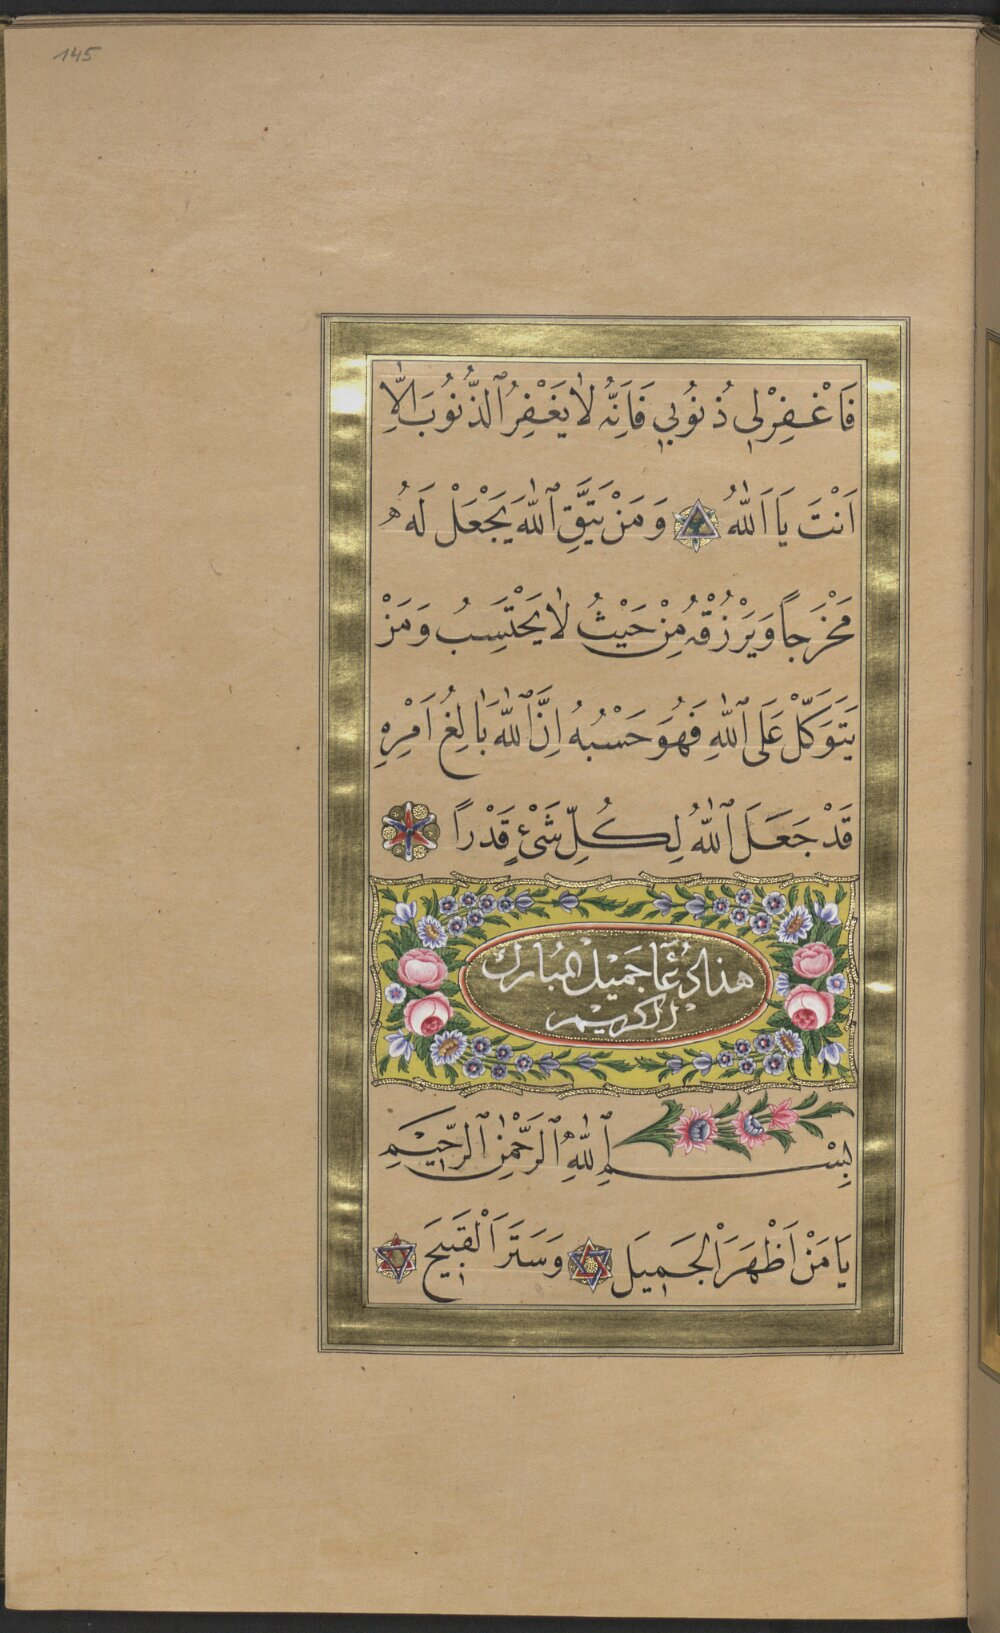 145
فَاغْفِرْلِى ذُنُوبِى فَاِنَّهُ لَا يَغْفِرُ ٱلذُّنُوبَ اِلَّا
اَنْتَ يَا اَللّٰهُ وَمَنْ يَتَّقِ ٱللّٰهَ يَجْعَلْ لَهُ
مَخْرَجًا وَيَرْزُقْهُ مِنْ حَيْثُ لَا يَحْتَسِبُ وَمَنْ
يَتَوَكَّلْ عَلَى ٱللّٰهِ فَهُوَ حَسْبُهُ اِنَّ ٱللّٰهَ بَالِغُ اَمْرِهِ
قَدْ جَعَلَ ٱللّٰهُ لِكُلِّ شَىْءٍ قَدْرًا
هذا دُعَٓا جَمِيْل المُبارك
الكريم
بِسْمِ ٱللّٰهِ ٱلرَّحْمٰنِ ٱلرَّحِيْمِ
يَا مَنْ اَظْهَرَ اْلجَمِيلَ وَسَتَرَ اْلقَبِيحَ